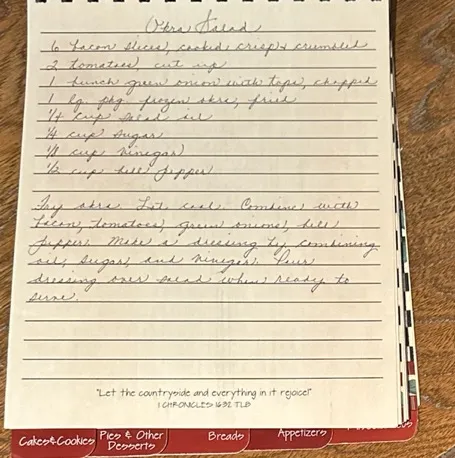 Okra Salad
6 bacon slices, cooked crisp & crumbled
2 tomatoes, cut up
1 bunch green onion with tops, chopped
1 lg. pkg. frozen okra, fried
1/4 cup salad oil
1/4 cup sugar
cup vinegar
1/2 cup bell pepper
Fry okra. Let cool. Combine with
bacon, tomatoes, green onions, bell
pepper. Make a dressing by combining
oil, sugar, and vinegar. Pour
dressing over salad when ready to
serve.
"Let the countryside and everything in it rejoice!"
1 CHRONICLES 16:32 TLB
Cakes&Cookies Pies & Other Desserts Breads Appetizers